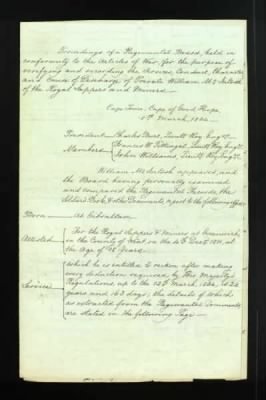 Proceedings of a Regimental Board, held in
conformity to the Articles of War, for the purpose of
verifying and recording the Services, Conduct, Character
and Cause of Discharge of Private William McIntosh
of the Royal Sappers and Miners.
Cape Town, Cape of Good Hope,
March,
President
Members
John Williams, Lieutt Roy Engrs.
William McIntosh appeared, and
the Board having personally examined
and compared the Regimental Records, the
Soldier's Book, & other Documents, report to the following effect,
Born
at Gibraltar
Attested
For the Royal Sappers & Miners at Greenwich,
in the County of Kent on the
at the Age of Years.
Service
which he is entitled to reckon after making
every deduction required by His Majesty's
Regulations, up to the March, is 22
years and 163 days; the details of which
as extracted from the Regimental Documents
are stated in the following Page.